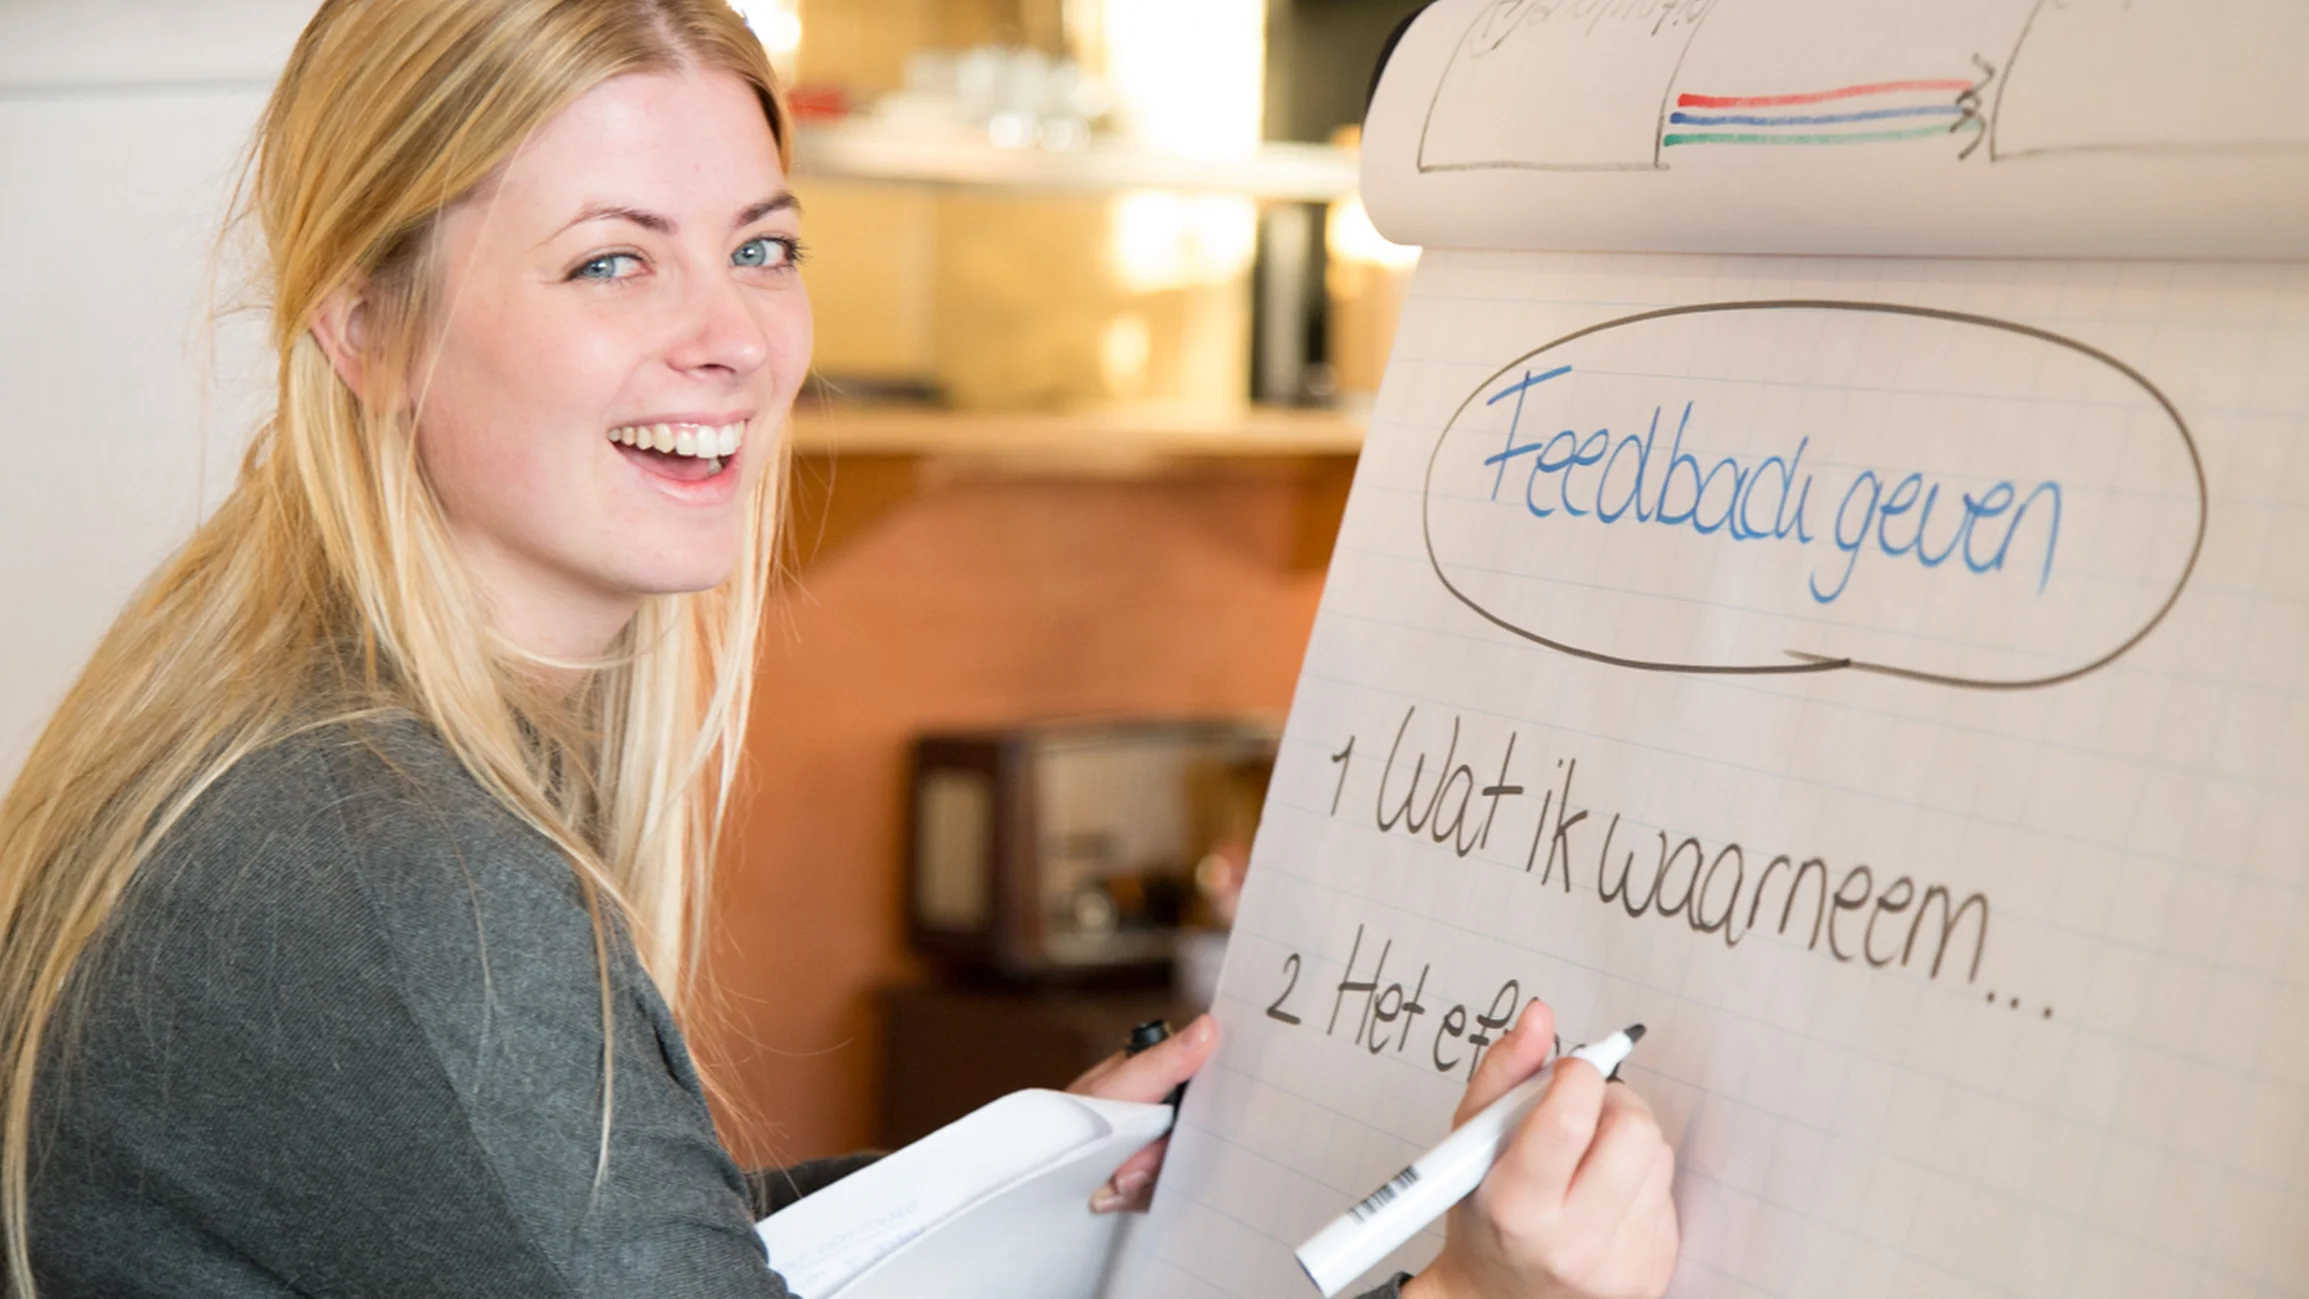 Feedback geven
1 Wat ik waarneem...
2 Het